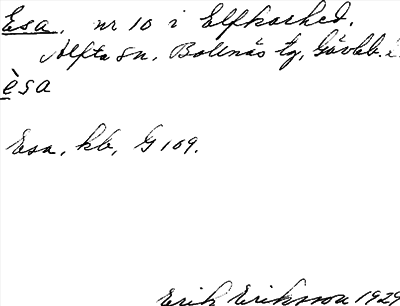 Esa, nr 10 i Elfkarhed.
Alfta sn, Bollnäs tg, Gävleb. l.
èsa
Esa, kb, G 109.
Erik Eriksson 1929